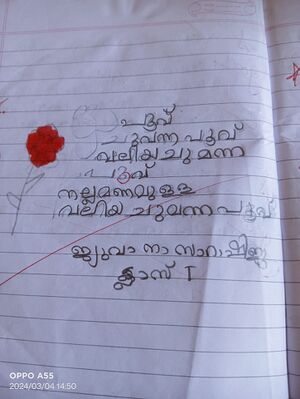 പൂവ്
ചുവന്ന പൂവ്
വലിയ ചുമന്ന
പൂവ്
നല്ലമണമുള്ള
വലിയ ചുവന്ന പൂവ്
ജുവാനാ സാറാഷിബു
ക്ലാസ് I
OPPO A55
2024/03/04 14:50